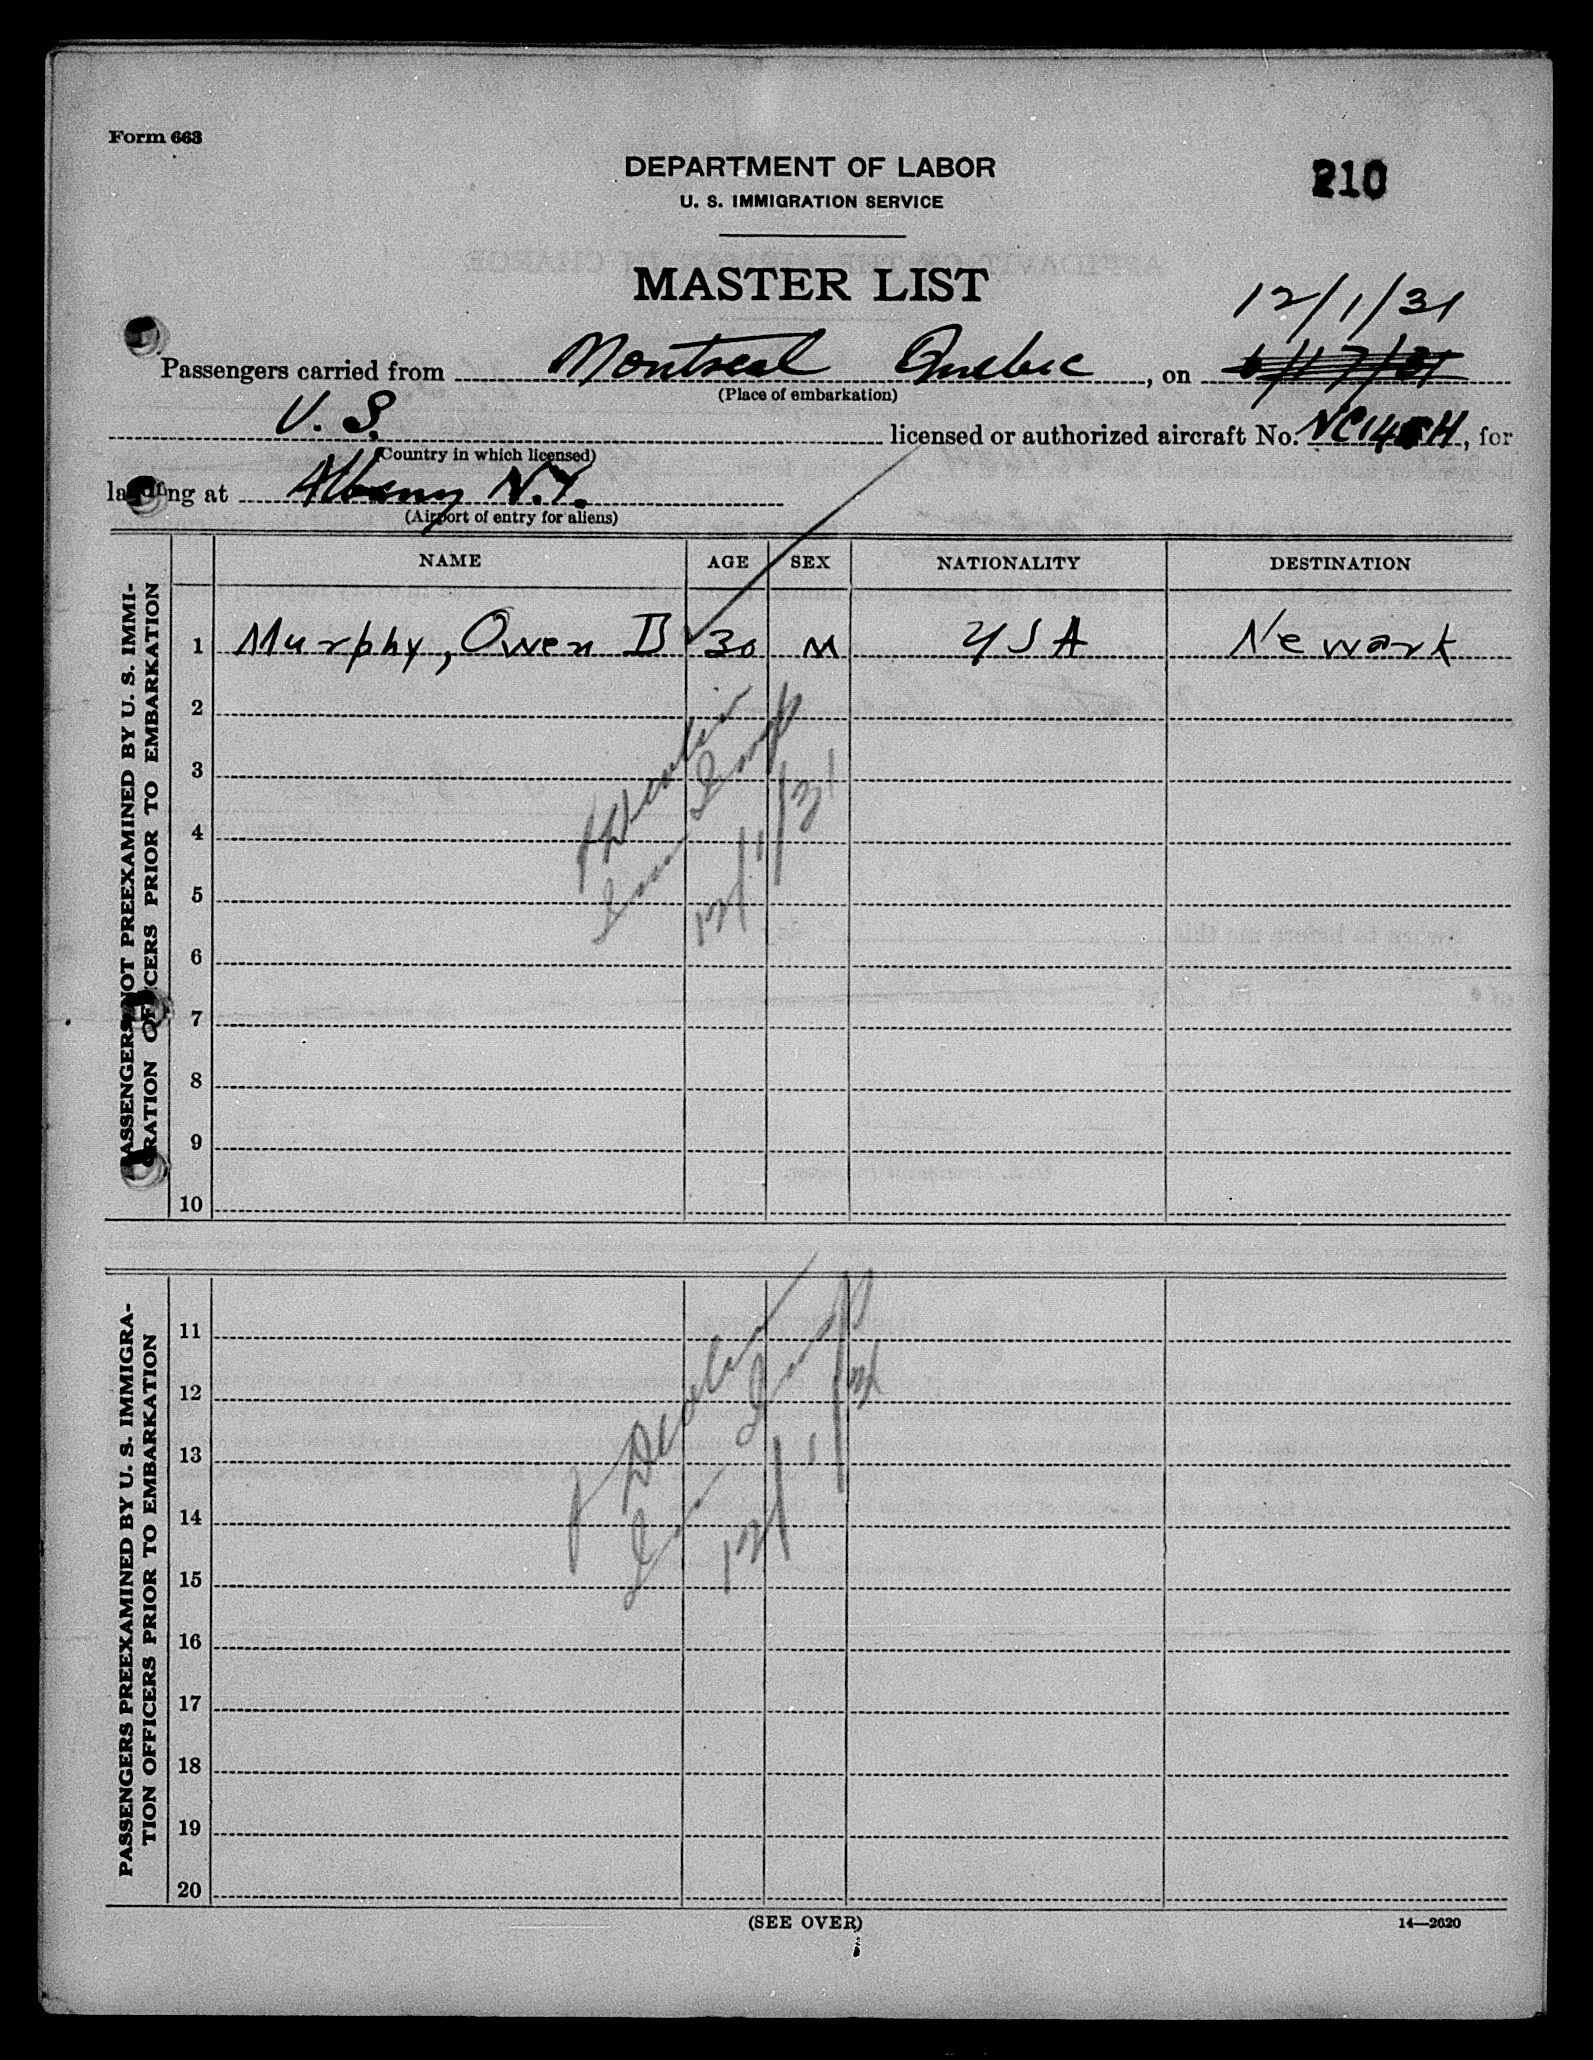 Form 663
DEPARTMENT OF LABOR
210
U. S. IMMIGRATION SERVICE
MASTER LIST
12/1/31
Passengers carried from Montreal Quebec, on
(Place of embarkation)
U. S. licensed or authorized aircraft No. , for
(Country in which licensed)
landing at Albany N.Y.
(Airport of entry for aliens)
NAME AGE SEX NATIONALITY DESTINATION
PASSENGERS NOT PREEXAMINED BY U. S. IMMI-
GRATION OFFICERS PRIOR TO EMBARKATION
1 Murphy, Owen B 30 M USA Newark
2
3
4
5
6
7
8
9
10
J Devlin
Imm Insp
12/1/31
PASSENGERS PREEXAMINED BY U. S. IMMIGRA-
TION OFFICERS PRIOR TO EMBARKATION
11
12
13
14
15
16
17
18
19
20
J Devlin
Imm Insp
12/1/31
(SEE OVER)
14—2620